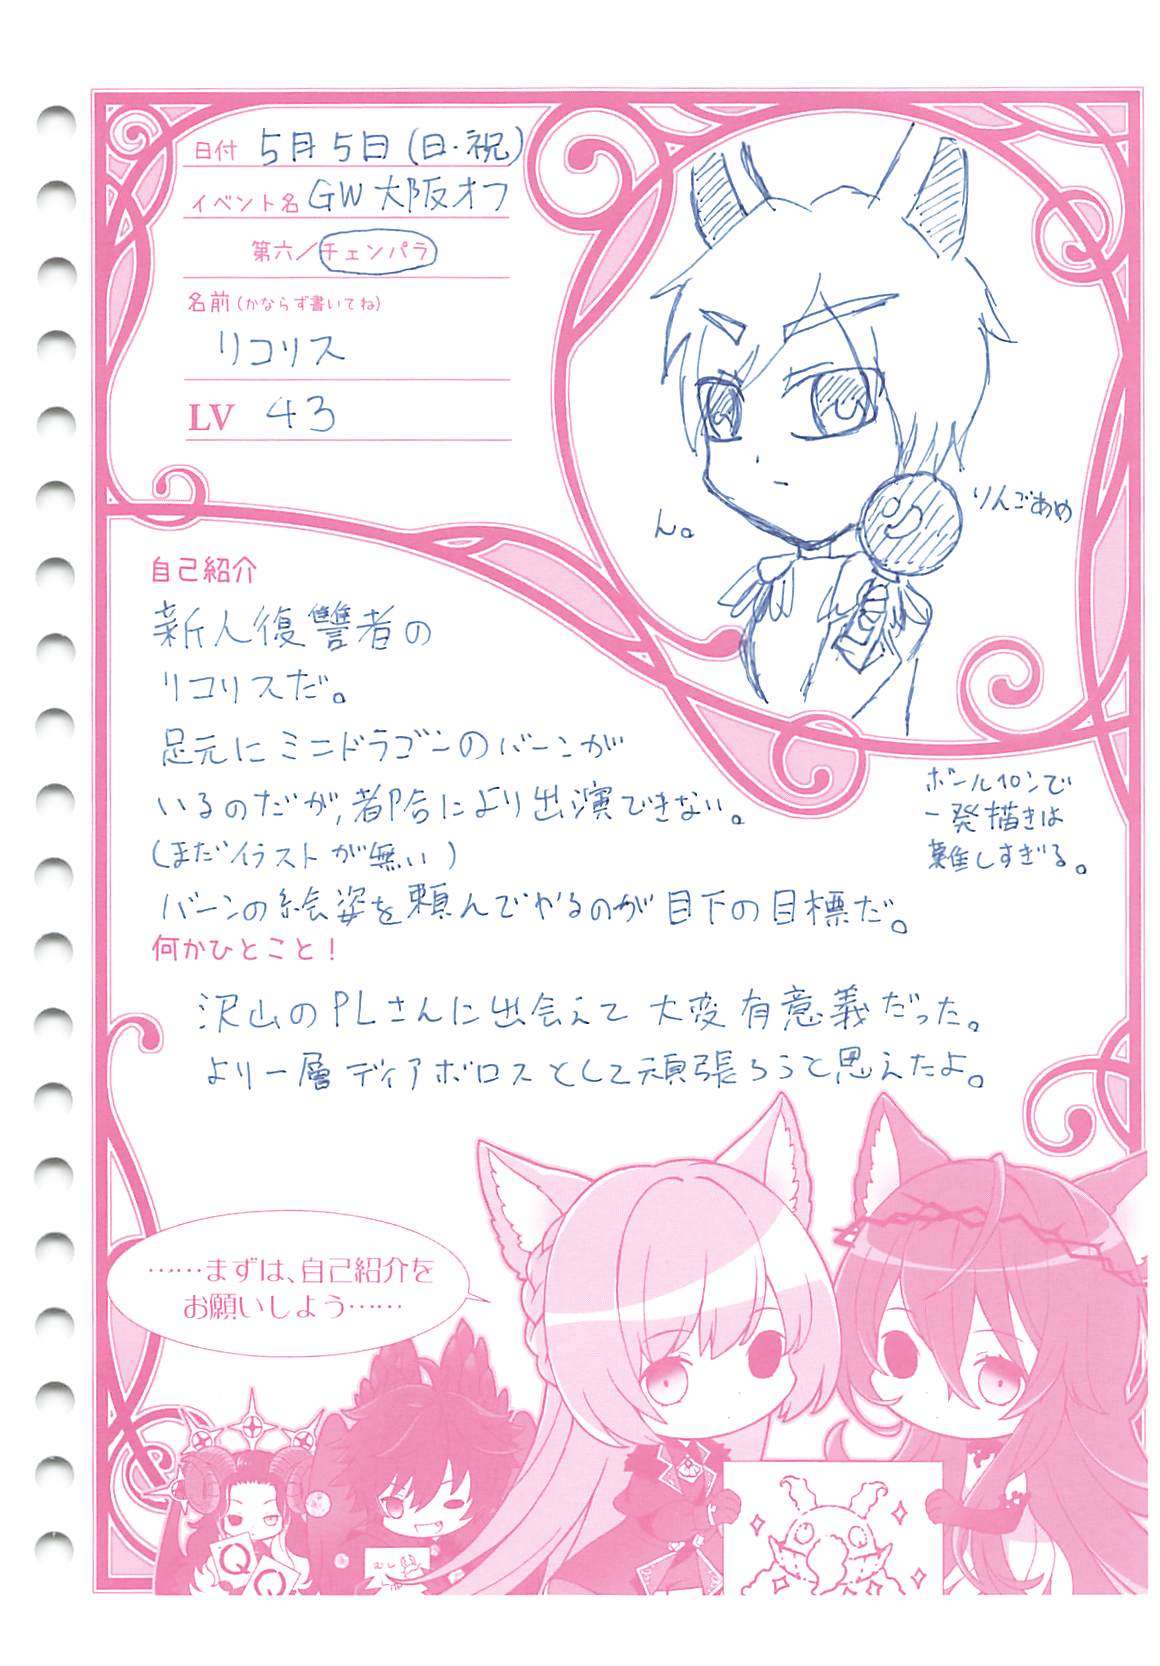 日付 5月5日(日・祝)
イベント名 GW大阪オフ
第六／チェンパラ
名前(かならず書いてね)
リコリス
LV 43
ん。
りんごあめ
自己紹介
新人復讐者の
リコリスだ。
足元にミニドラゴンのバーンが
いるのだが、都合により出演できない。
(まだイラストが無い)
バーンの絵姿を頼んでやるのが目下の目標だ。
ボールペンで
一発描きは
難しすぎる。
何かひとこと！
沢山のPLさんに出会えて大変有意義だった。
より一層ディアボロスとして頑張ろうと思えたよ。
……まずは、自己紹介を
お願いしよう……
Q
Q